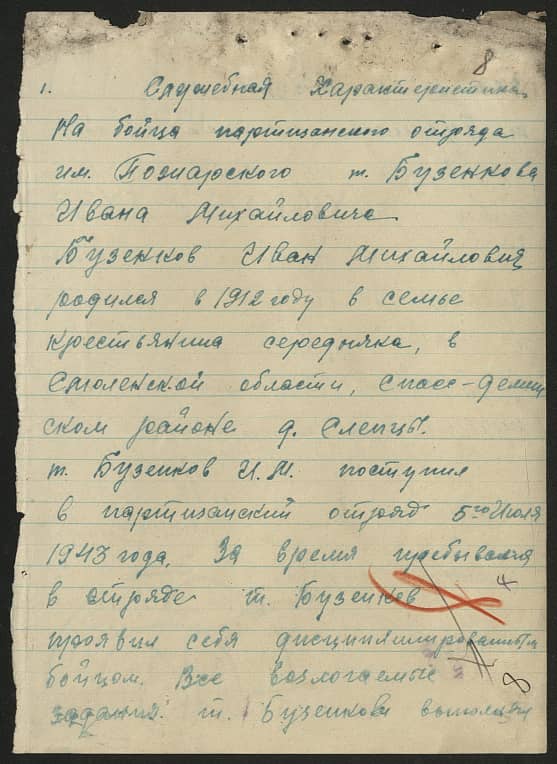 8
1. Служебная Характеристика
На бойца партизанского отряда
им. Пожарского т. Бузенкова
Ивана Михайловича
Бузенков Иван Михайлович
родился в 1912 году в семье
крестьянина середняка, в
Смоленской области, Спасс-Демен
ском районе д. Слепцы.
т. Бузенков И.М. поступил
в партизанский отряд 5го Июля
1943 года, За время пребывания
в отряде т. Бузенков
4
проявил себя дисциплинированным
бойцом. Все возлогаемые
8
задания т. Бузенковы выполнял